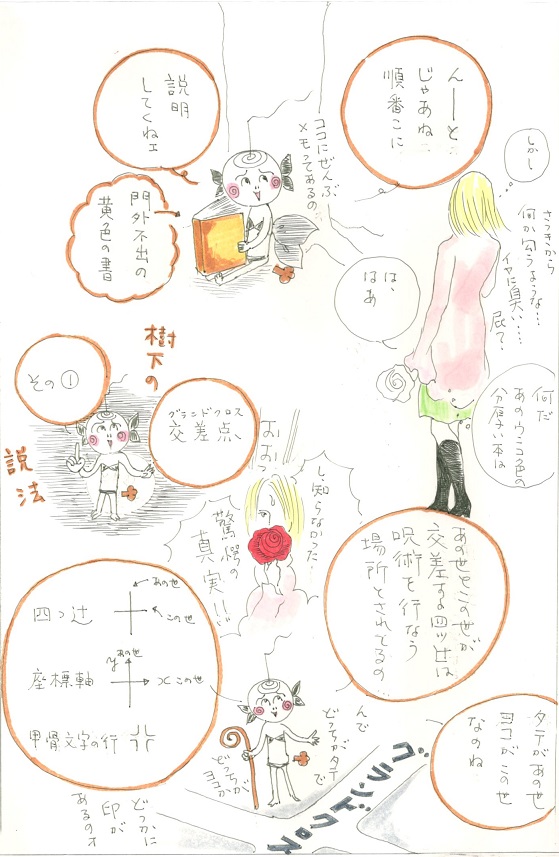 んーと
じゃあね
順番こに
説明
してくねェ
ココにぜんぶ
メモってあるの
門外不出の
黄色の書
しかし
さっきから
何か匂うような…
イヤに臭い…
屁？
は、
はあ
何だ
あのウンコ色の
分厚い本は
樹下の
説法
その①
グランドクロス
交差点
おおっ
し、知らなかった…
驚愕の
真実!!
あの世とこの世が
交差する四ッ辻は
呪術を行なう
場所とされてるの
四つ辻
あの世
この世
座標軸
あの世
y
x この世
甲骨文字の行
タテがあの世
ヨコがこの世
なのね
んで
どっちがタテで
どっちが
ヨコか
どっかに
印が
あるのオ
グランドクロス